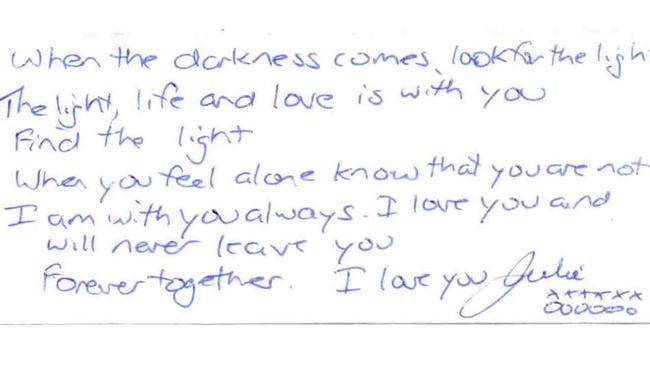 When the darkness comes, look for the ligh
The light, life and love is with you
Find the light
When you feel alone know that you are not
I am with you always. I love you and
will never leave you
Forever together. I love you Julie
xxxxxx
oooooo